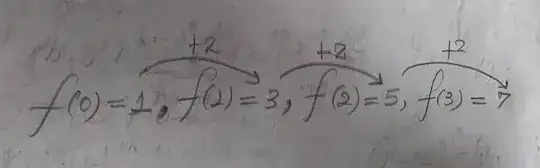 +2 +2 +2
f(0)=1, f(1)=3, f(2)=5, f(3)=7